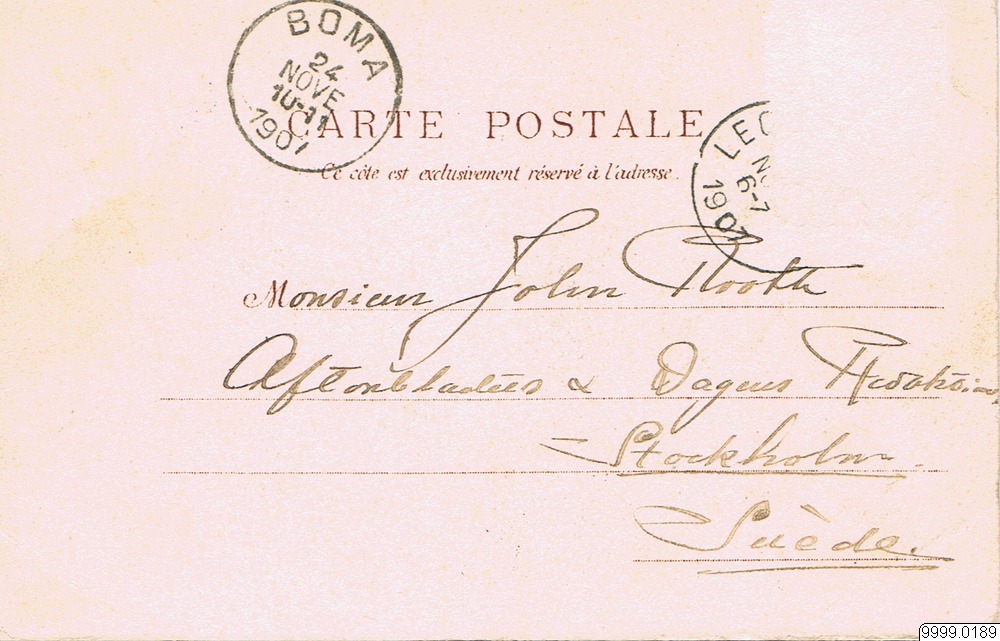 BOMA
24
NOVE
10-11
1907
CARTE POSTALE
Ce côte est exclusivement réservé à l'adresse.
LEO
NO
6-7
1907
Monsieur John Rooth
Aftonbladets & Dagens Redaktion
Stockholm.
Suède.
9999.0189